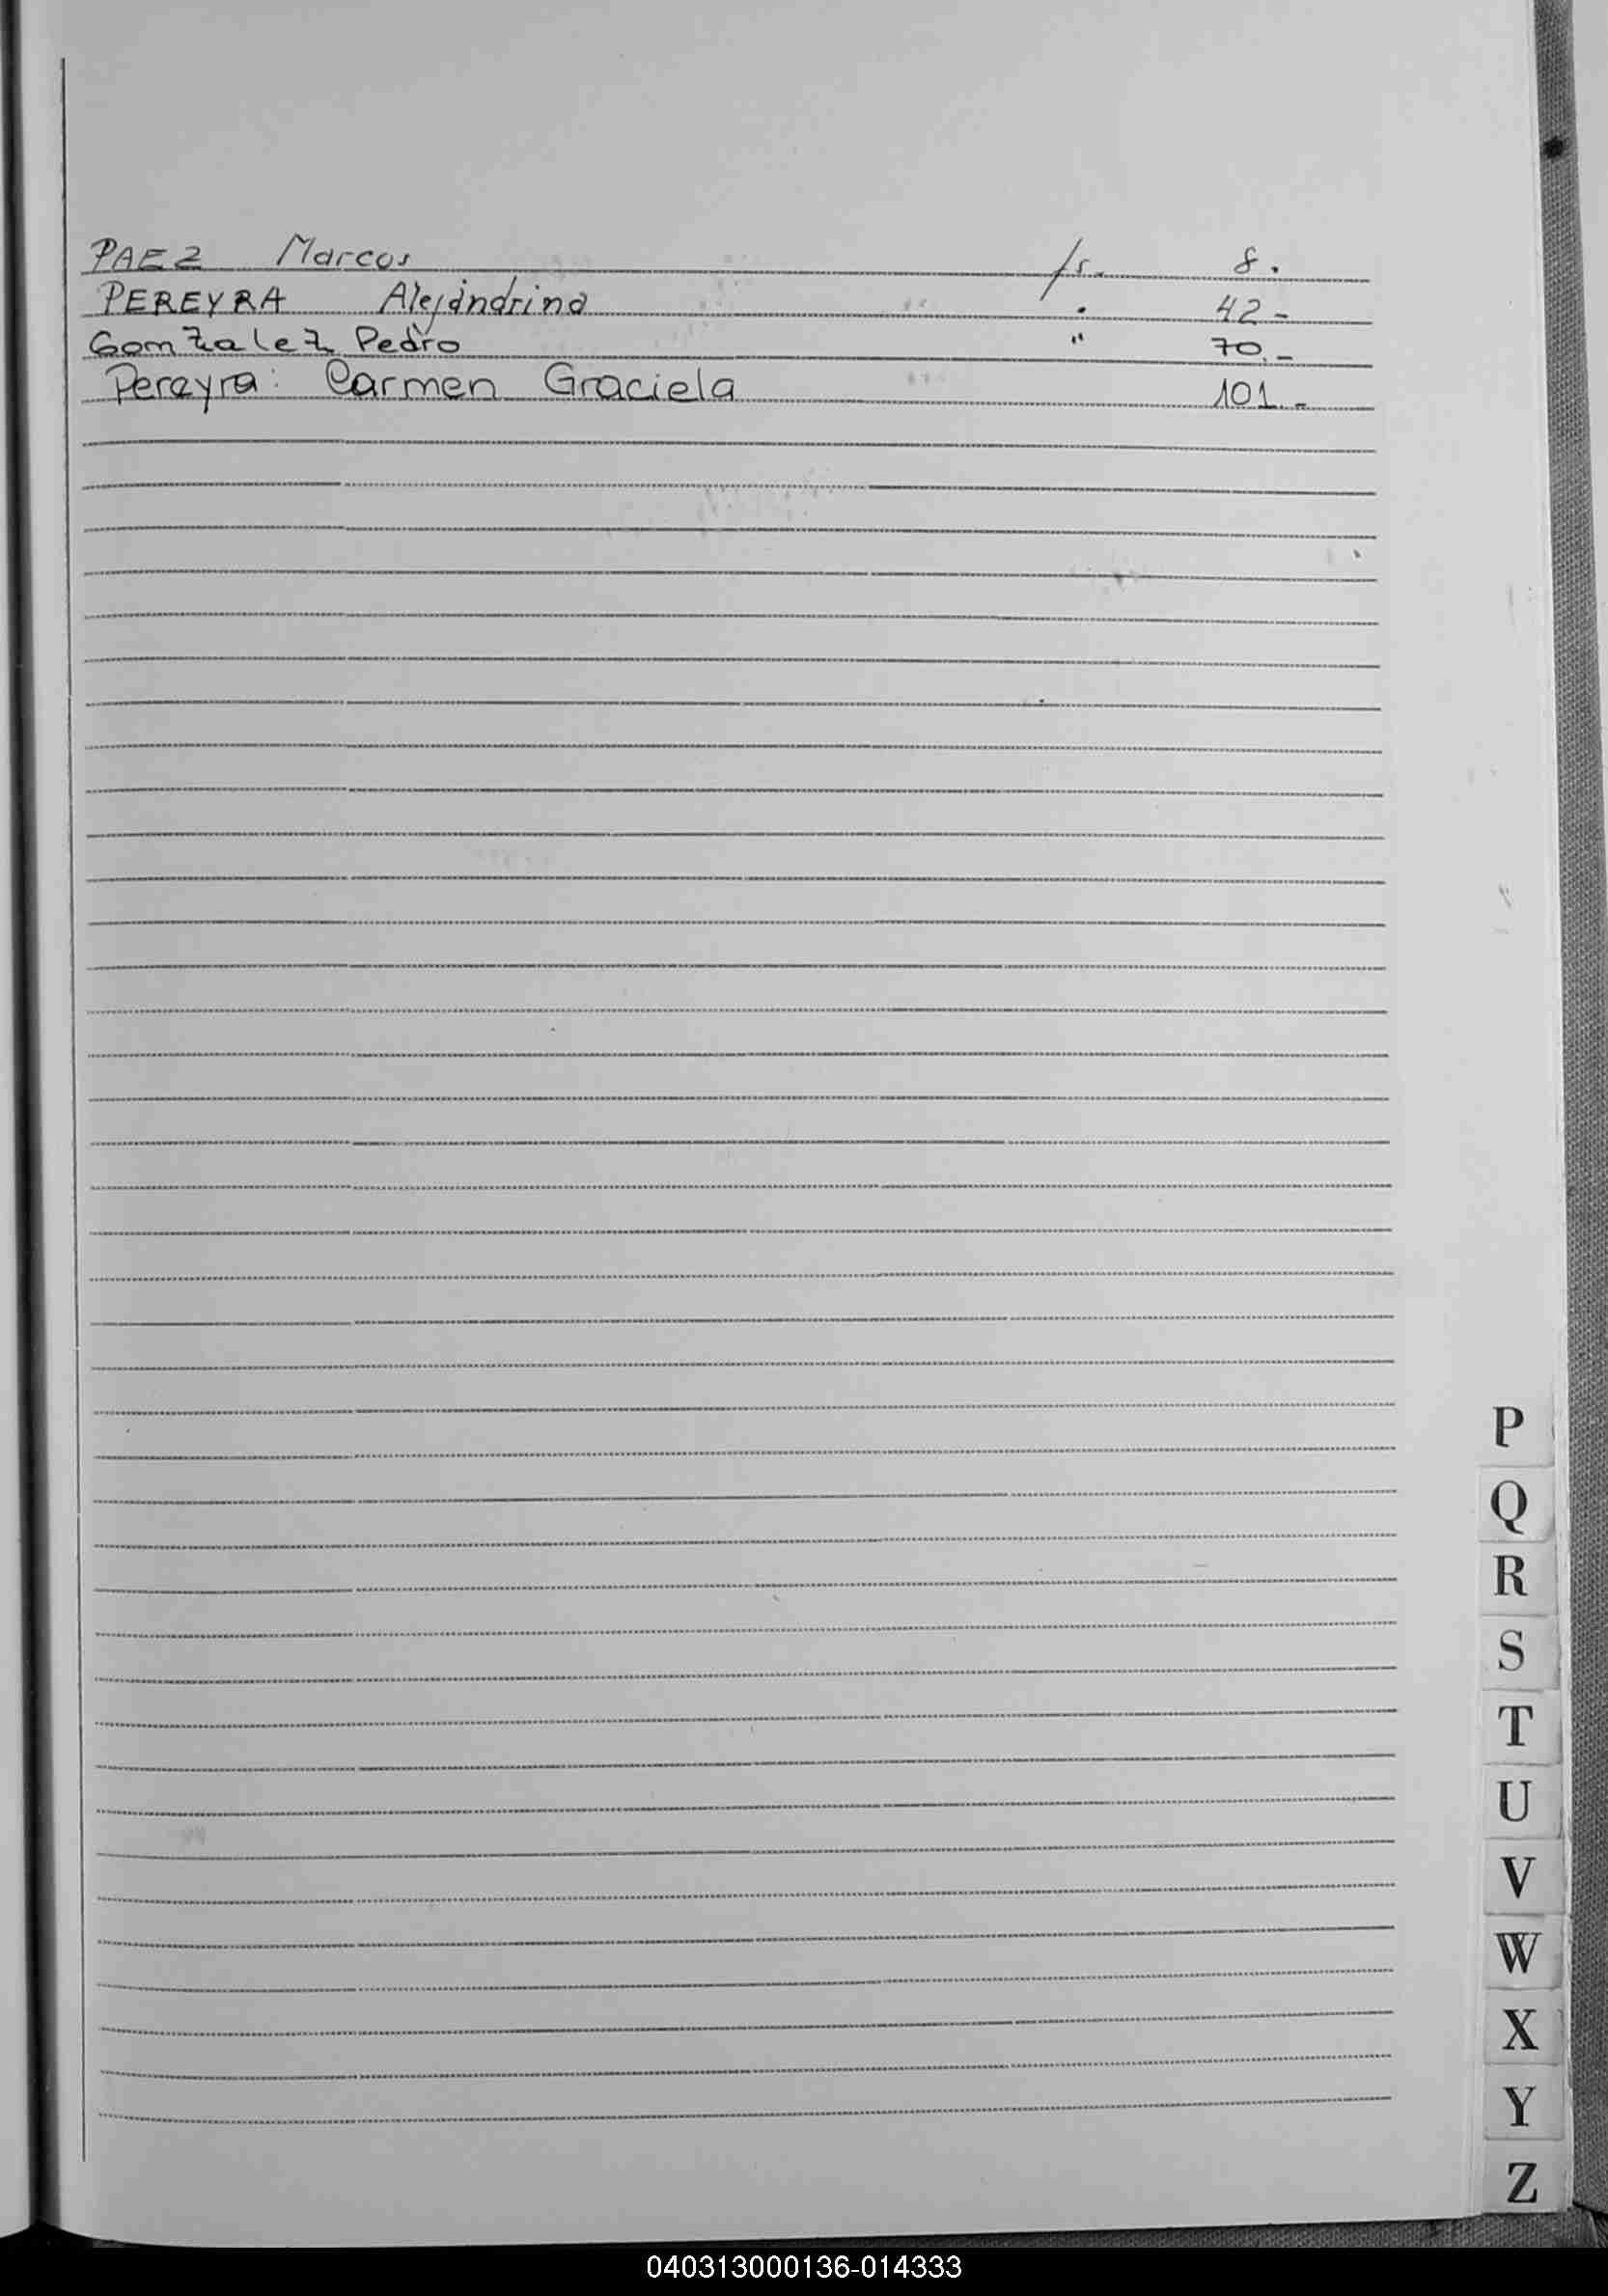 PAEZ Marcos fs. 8.
PEREYRA Alejandrina " 42-
Gonzalez Pedro " 70.-
Pereyra: Carmen Graciela 101.-
P
Q
R
S
T
U
V
W
X
Y
Z
040313000136-014333